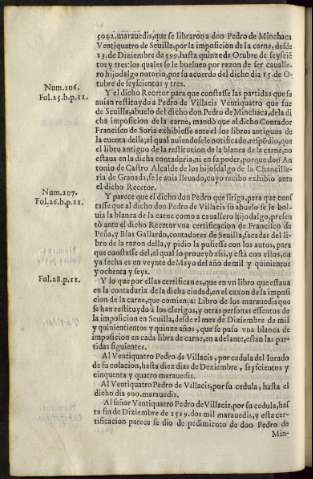 5092. marauedis, que se libraron a don Pedro de Minchaca
Veintiquatro de Seuilla, por la imposicion de la carne, desde
23. de Diziembre de 599. hasta quinze de Otubre de seyscie
tos y tres: los quales se le bueluen por razon de ser caualle
ro hijodalgo notorio, por su acuerdo del dicho dia 15 de Oc
tubre de seyscientos y tres.
Num. 106.
Fol. 25. b. p. 11.
Y el dicho Rector para que constasse las partidas que se
auian restituydo a Pedro de Villacis Ventiquatro que fue
de Seuilla, abuelo del dicho don Pedro de Minchaca, de la di
cha imposicion de la carne, mandò que el dicho Contador
Francisco de Soria exhibiesse ante el los libros antiguos de
la cuenta della, el qual auiendosele notificado, respõdio, que
el libro antiguo de la restitucion de la blanca de la carne, no
estaua en la dicha contaduria, ni en su poder, porque don An
tonio de Castro Alcalde de los hijosdalgo de la Chancille-
ria de Granada, se le auia lleuado, cuyo recibo exhibio ante
el dicho Rector.
Num. 107.
Fol. 26. b. p. 11.
Y parece que el dicho don Pedro que litiga, para que cons
tasse que al dicho don Pedro de Villacis su abuelo se le bol-
uia la blanca de la carne como a cauallero hijodalgo, presen
tò ante el dicho Rector vna certificacion de Francisco de
Peña, y Blas Gallardo, contadores de Seuilla, sacadas del li-
bro de la razon della, y pidio la pusiesse con los autos, para
que constasse del, el qual lo proueyò assi, y està con ellos, cu
ya fecha es en veynte de Mayo del año de mil y quinientos
y ochenta y seys.
Fol. 28. p. 11.
Y lo que por ellas certifican es, que en vn libro que estaua
en la contaduria de la dicha ciudad, en el enton de la imposi
cion de la carne, que comiença: Libro de los marauedis que
se han restituydo à los clerigos, y otras personas essentos de
la imposicion en Seuilla, desde el mes de Diziembre de mil
y quinientos y quinze años, que se passò vna blanca de
imposicion en cada libra de carne, en adelante, estan las par
tidas siguientes.
Al Ventiquatro Pedro de Villacis, por cedula del Iurado
de su colacion, hasta diez dias de Deziembre, seyscientos y
cinquenta y quatro marauedis.
Al Ventiquatro Pedro de Villacis, por su cedula, hasta el
dicho dia 900. marauedis.
Al señor Ventiquatro Pedro de Villacis, por su cedula, has
ta fin de Diziembre de 1519. dos mil marauedis, y esta cer-
tificacion parece se dio de pedimiento de don Pedro de
Min-